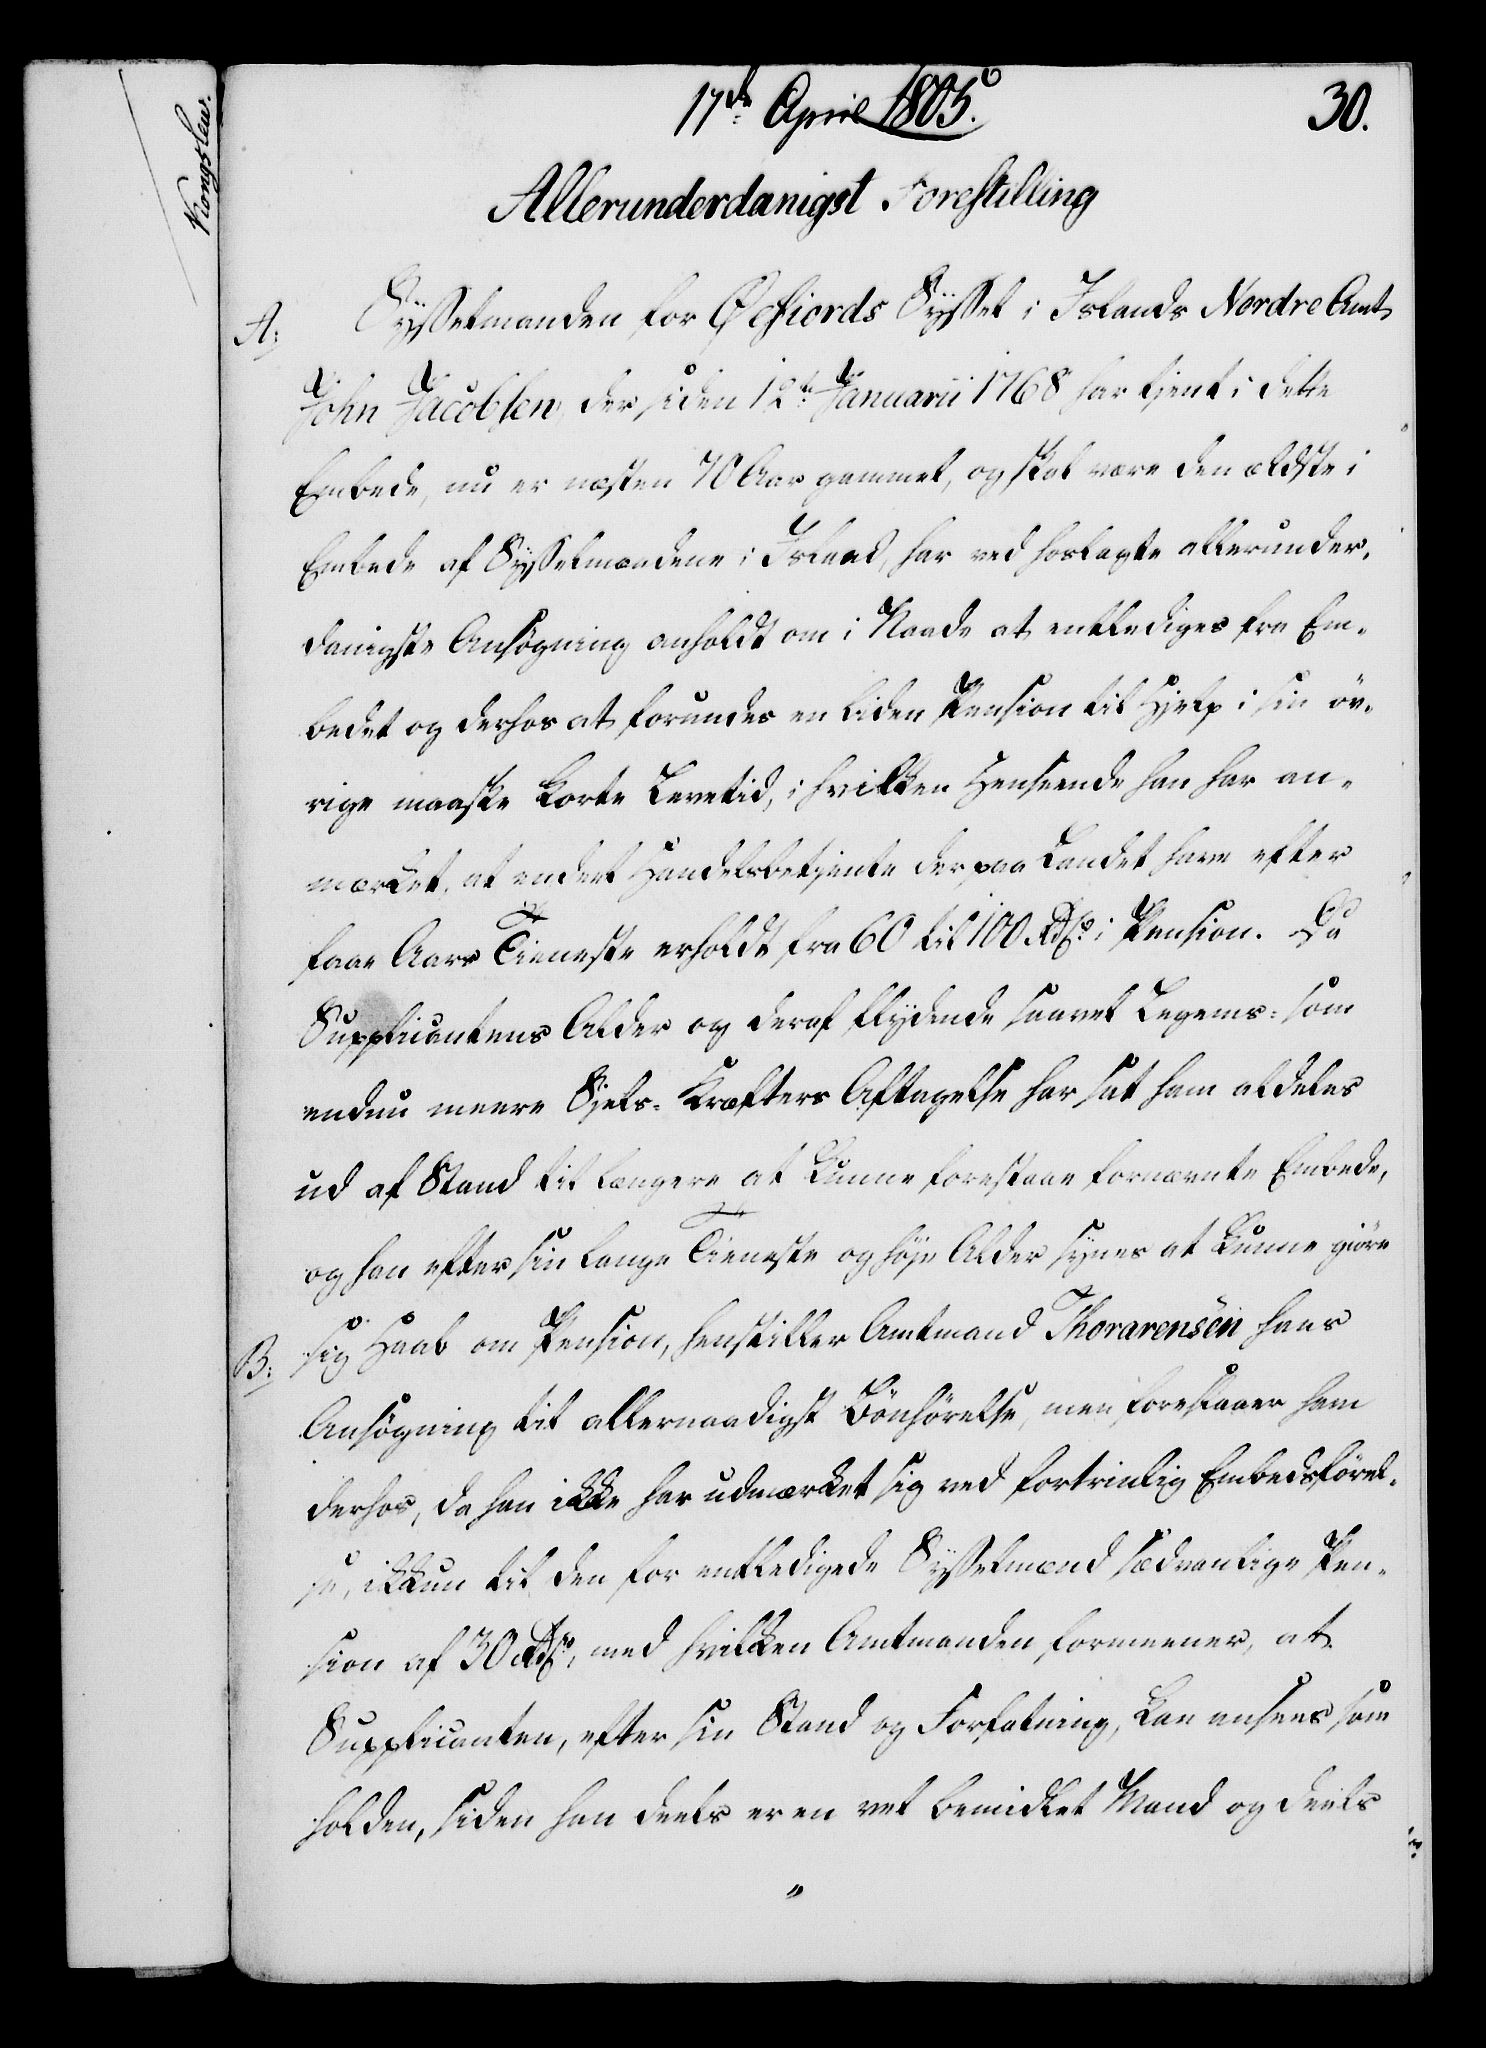 Kongslew.
17de April 1805.
30.
Allerunderdanigst Forestilling
A: Sysselmanden for Öefiords Syssel i Islands Nordre Amt
John Jacobsen, der siden 12te Januarii 1768 har tjent i dette
Embede, nu er næsten 70 Aar gammel, og skal være den ældste i
Embede af Sysselmændene i Island, har ved hoslagte allerunder-
danigste Ansögning anholdt om i Naade at entlediges fra Em-
bedet og derhos at forundes en liden Pension til Hjelp i sin öv-
rige maaske korte Levetid, i hvilken Henseende han har an-
mærket, at endeel Handelsbetjente der paa Landet have efter
faae Aars Tieneste erholdt fra 60 til 100 Rdlr i Pension. Da
Supplicantens Alder og deraf flydende saavel Legems- som
endnu meere Sjels-Kræfters Aftagelse har sat ham aldeles
ud af Stand til længere at kunne forestaae fornævnte Embede,
og han efter sin lange Tieneste og höje Alder synes at kunne giöre
B: sig Haab om Pension, henstiller Amtmand Thorarensen hans
Ansögning til allernaadigst Bönhörelse, men foreslaaer ham
derhos, da han ikke har udmærket sig ved fortrinlig Embedsförel-
se, ikkun til den for entledigede Sysselmænd sædvanlige Pen-
sion af 30 Rdlr, med hvilken Amtmanden formeener, at
Supplicanten, efter sin Stand og Forfatning, kan ansees som
holden, siden han deels er en vel bemidlet Mand og deels